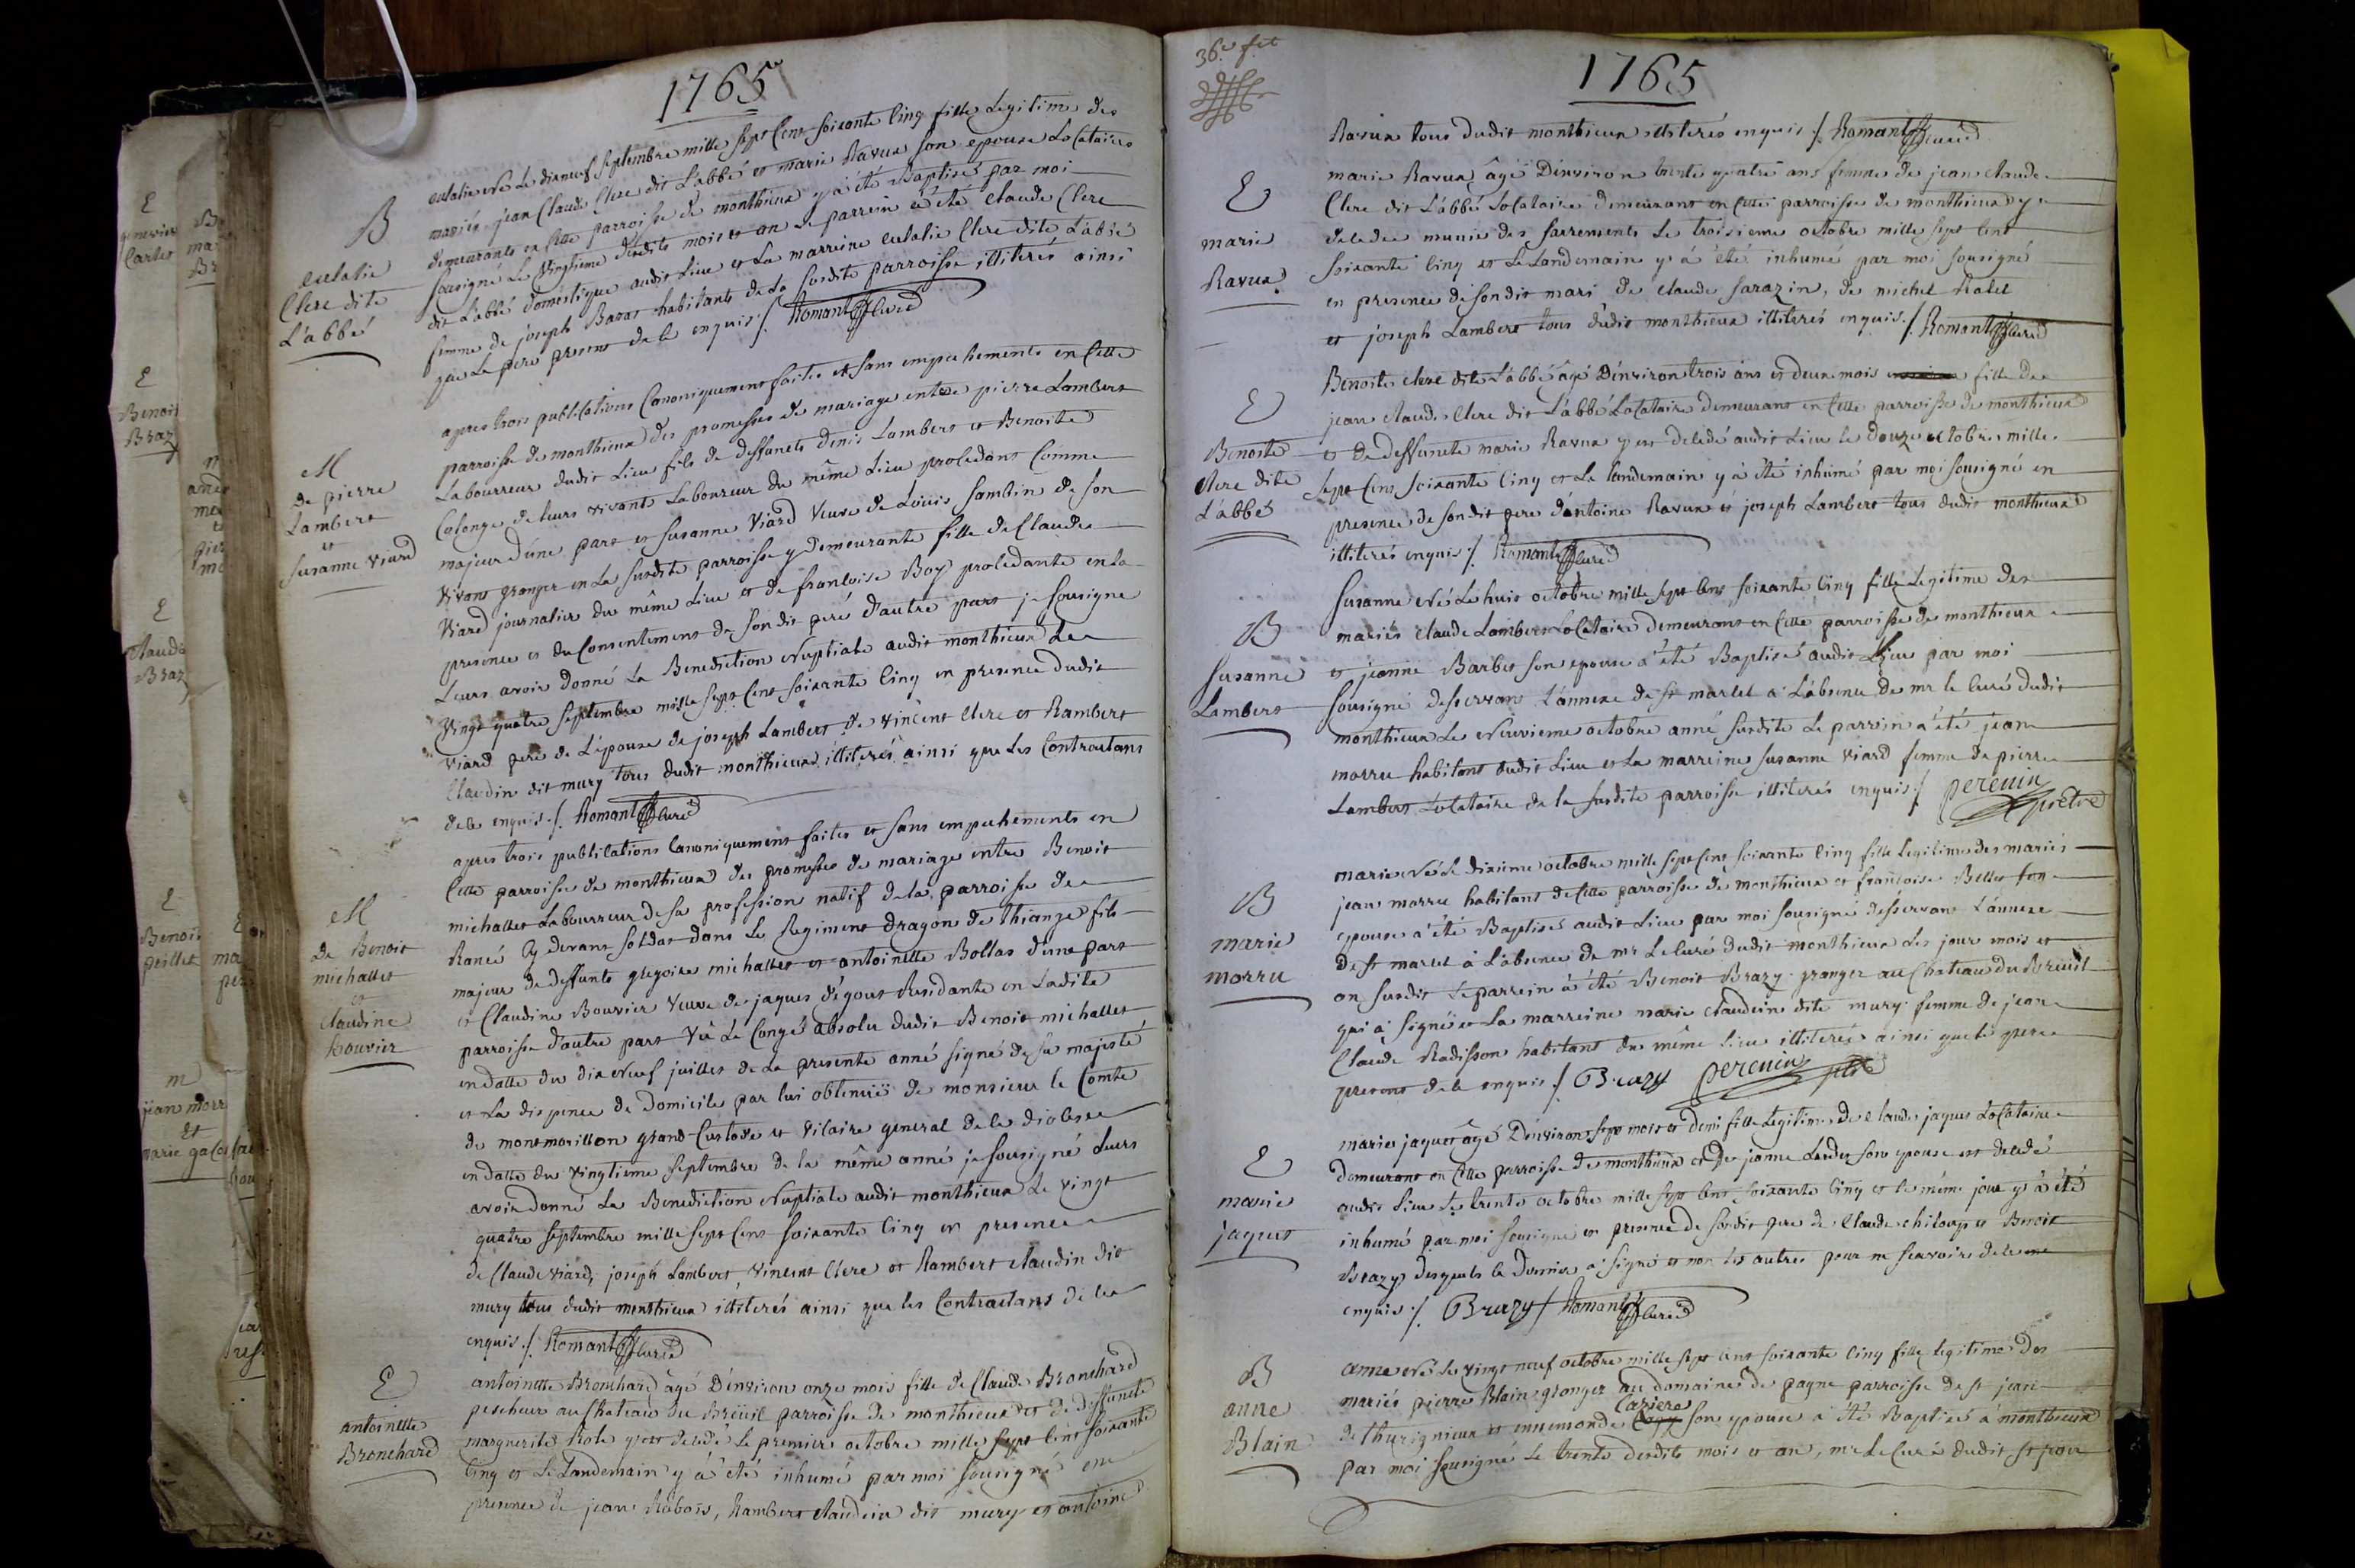 1765
B
eulalie
Clerc dite
L'abbé
eulalie née Le dixneuf septembre mille sept Cent soixante Cinq fille Legitime des
mariés jean Claude Clerc dit L'abbé et marie Ravux son epouse LoCataires
demeurants en Cette parroisse de monthieux y à été Baptisé par moi
sousigné Le Vingtieme desdits mois et an Le parrein a été Claude Clerc
dit L'abbé domestique audit Lieu et La marreine eulalie Clerc dite L'abbé
femme de joseph Barat habitants de La susdite parroisse illiterés ainsi
que Le pere present de le enquis ./. Romant Curé
M
de pierre
Lambert
et
susanne viard
apres trois publiCations Canoniquement faites et sans empechements en Cette
parroisse de monthieux des promesses de mariage entre pierre Lambert
Labourreur dudit Lieu fils de deffuncts denis Lambert et Benoite
Colonge de leurs vivant Laboureur du même Lieu proCedant Comme
majeur d'une part et susanne Viard Veuve de Loüis sambin de son
vivant granger en La susdite parroisse y demeurante fille de Claude
Viard journalier du même Lieu et de françoise Boy proCedante en La
presence et du Consentement de sondit peré d'autre part je sousigne
Leurs avoir donné La Benediction Nuptiale audit monthieux Le
Vingt quatre septembre mille sept Cent soixante Cinq en presence dudit
viard pere de L'epouse de joseph Lambert de vinCent Clerc et Rambert
Claudin dit mury tous dudit monthieux illiterés ainsi que Les Contractans
de le enquis ./. Romant Curé
M
de Benoit
michallet
et
Claudine
bouvier
apres trois publiCations Canoniquement faites et sans empechements en
Cette parroisse de monthieux des promesses de mariage entre Benoit
michallet Labourreur de sa profession natif de la parroisse de
Rancé Cy devant soldat dans Le Regiment dragon de thiange fils
majeur de deffunts gregoire michallet et antoinette Bollas d'une part
et Claudine Bouvier Veuve de jaques d'égout Residante en Ladite
parroisse d'autre part Vû Le Congé absolu dudit Benoit michallet
en datte du dix Neuf juillet de La presente anné signé de sa majesté
et La dispence de domicile par lui obtenuë de monsieur le Comte
de montmorillon grand Custode et ViCaire general de le dioCese
en datte du Vingtieme septembre de la même anné je sousigné Leurs
avoir donné La Benediction Nuptiale audit monthieux Le vingt
quatre septembre mille sept Cent soixante Cinq en presence
de Claude viard, joseph Lambert, vinCent Clerc et Rambert Claudin dit
mury tous dudit monthieux illiterés ainsi que les Contractans de le
enquis ./. Romant Curé
E
antoinette
Bronchard
antoinette Bronchard âgé D'environ onze mois fille de Claude Bronchard
pescheur au Chateau du Breüil parroisse de monthieux et de deffuncte
marguerite Role y est deCedé Le premier octobre mille sept Cent soixante
Cinq et Le Landemain y à été inhumé par moi sousigné en
presence de jean Rabois, Rambert Claudin dit mury et antoine
36e. f.et
1765
Ravux tous dudit monthieux illiterés enquis ./. Romant Curé
E
marie
Ravux
marie Ravux âgé D'environ trente quatre ans femme de jean Claude
Clerc dit L'abbé LoCataire demeurant en Cette parroisse de monthieux y e
deCedée munie des sacrements Le troisieme octobre mille sept Cent
soixante Cinq et Le Landemain y à été inhumé par moi sousigné
en presence de sondit mari de Claude sarazin, de michel Ratet
et joseph Lambert tous dudit monthieux illiterés enquis ./. Romant Curé
E
Benoite
Clerc dite
L'abbé
Benoite Clerc dite L'abbé âgé D'environ trois ans et deux mois fille de
jean Claude Clerc dit L'abbé LoCataire demeurant en Cette parroisse de monthieux
et de deffuncte marie Ravux y est deCedé audit Lieu le douze octobre mille
sept Cent soixante Cinq et Le landemain y à été inhumé par moi sousigné en
presence de sondit pere d'antoine Ravux et joseph Lambert tous dudit monthieux
illiterés enquis ./. Romant Curé
B
susanne
Lambert
susanne Né Le huit octobre mille sept Cent soixante Cinq fille Legitime des
mariés Claude Lambert LoCataire demeurant en Cette parroisse de monthieux
et jeanne Barbet son epouse a été Baptisé audit Lieu par moi
sousigné desservant L'annexe de st marcel a L'absence de mr le Curé dudit
monthieux Le Neuvieme octobre anné susdite Le parrein a été jean
morru habitant dudit Lieu et La marreine susanne viard femme de pierre
Lambert LoCataire de la susdite parroisse illiterés enquis ./. perenin
prêtre
B
marie
morru
marie Né Le dixieme octobre mille sept Cent soixante Cinq fille Legitime des mariés
jean morru habitant de Cette parroisse de monthieux et françoise Bellet son
epouse a été Baptisé audit Lieu par moi sousigné desservant L'annexe
de st marcel à L'absence de mr Le Curé dudit monthieux Les jour mois et
an susdit Le parrein à été Benoit Brazy granger au Chateau du Breüil
qui à signé et La marreine marie Claudin dite mury femme de jean
Claude Radisson habitant du même lieu illiterée ainsi que le pere
present de le enquis ./. Brazy perenin ptre
E
marie
jaquet
marie jaquet âgé D'environ sept mois et demi fille Legitime de Claude jaquet LoCataire
demeurant en Cette parroisse de monthieux et de jeanne Lander son epouse est deCedé
audit Lieu Le trente octobre mille sept Cent soixante Cinq et le même jour y à été
inhumé par moi sousigné en presence de sondit pere de Claude chiloup et Benoit
Brazy desquels le dernier a signé et non les autres pour ne sçavoir de le
enquis ./. Brazy / Romant Curé
B
anne
Blain
anne Né Le vingt neuf octobre mille sept Cent soixante Cinq fille legitime des
mariés pierre Blain granger au domaine de pagne parroisse de st jean
de thurignieux et ennemonde Cariere son epouse a été Baptisé a monthieux
par moi sousigné Le trente desdits mois et an, mr Le Curé dudit st jean